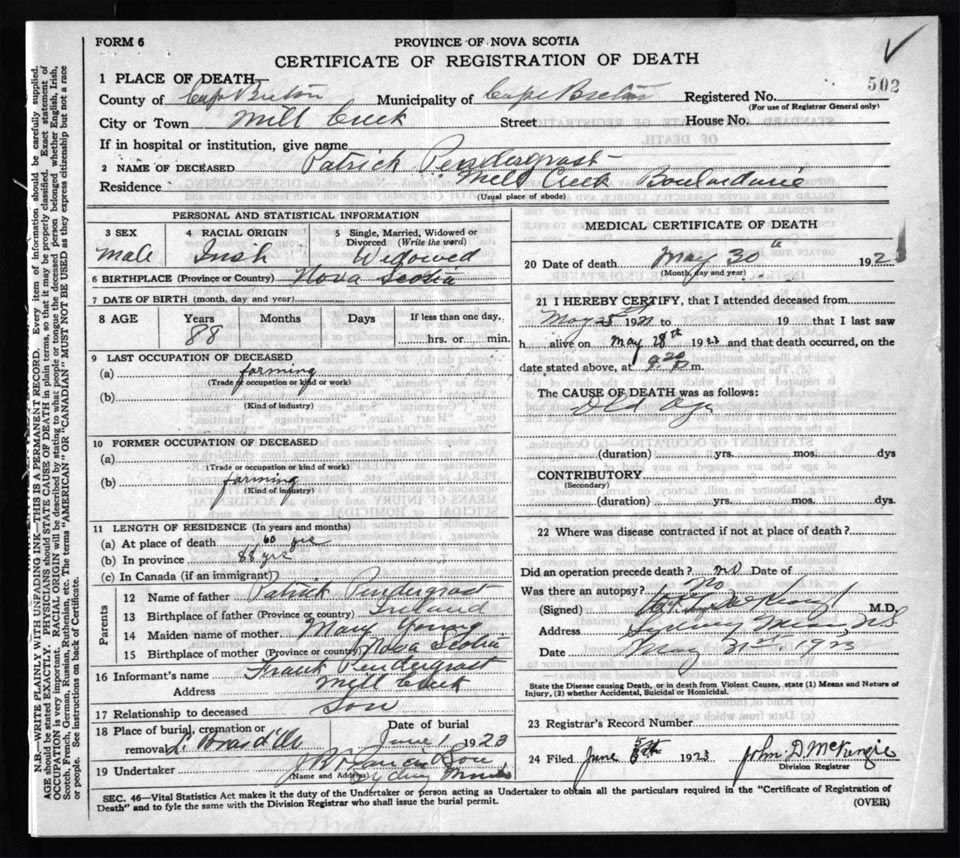 FORM 6
PROVINCE OF NOVA SCOTIA
CERTIFICATE OF REGISTRATION OF DEATH
502
1 PLACE OF DEATH—
County of Cape Breton Municipality of Cape Breton Registered No.
(For use of Registrar General only)
City or Town Mill Creek Street House No.
If in hospital or institution, give name
2 NAME OF DECEASED Patrick Pendergrast
Residence Mill Creek Boulardarie
(Usual place of abode)
PERSONAL AND STATISTICAL INFORMATION
3 SEX 4 RACIAL ORIGIN 5 Single, Married, Widowed or Divorced (Write the word)
Male Irish Widowed
6 BIRTHPLACE (Province or Country) Nova Scotia
7 DATE OF BIRTH (month, day and year)
8 AGE Years Months Days If less than one day,
88 hrs. or min.
9 LAST OCCUPATION OF DECEASED
(a) farming
(Trade or occupation or kind or work)
(b)
(Kind of industry)
10 FORMER OCCUPATION OF DECEASED
(a)
(Trade or occupation or kind of work)
(b) farming
(Kind of industry)
11 LENGTH OF RESIDENCE (In years and months)
(a) At place of death 60 yrs
(b) In province 88 yrs
(c) In Canada (if an immigrant)
Parents
12 Name of father Patrick Pendergrast
13 Birthplace of father (Province or country) Ireland
14 Maiden name of mother Mary Young
15 Birthplace of mother (Province or country) Nova Scotia
16 Informant's name Frank Pendergrast
Address Mill Creek
17 Relationship to deceased Son
18 Place of burial, cremation or Date of burial
removal L. Bras d'Or June 1 1923
19 Undertaker
(Name and Address) Sydney Mines
MEDICAL CERTIFICATE OF DEATH
20 Date of death May 30th 1923
(Month, day and year)
21 I HEREBY CERTIFY, that I attended deceased from
May 25 19 to 19 that I last saw
h alive on May 28th 1923 and that death occurred, on
date stated above, at m.
The CAUSE OF DEATH was as follows:
Old Age
(duration) yrs. mos. dys
CONTRIBUTORY
(Secondary)
(duration) yrs. mos. dys.
22 Where was disease contracted if not at place of death?
Did an operation precede death? no Date of
Was there an autopsy? No
(Signed) M.D.
Address Sydney Mines NS
Date May 31st 1923
State the Disease causing Death, or in death from Violent Causes, state (1) Means and Nature of
Injury, (2) whether Accidental, Suicidal or Homicidal.
23 Registrar's Record Number
24 Filed June 5th 1923 John D McKenzie
Division Registrar
SEC. 46—Vital Statistics Act makes it the duty of the Undertaker or person acting as Undertaker to obtain all the particulars required in the "Certificate of Registration of
Death" and to fyle the same with the Division Registrar who shall issue the burial permit.
(OVER)
N.B.—WRITE PLAINLY WITH UNFADING INK—THIS IS A PERMANENT RECORD. Every item of information should be carefully supplied.
AGE should be stated EXACTLY. PHYSICIANS should STATE CAUSE OF DEATH in plain terms, so that it may be properly classified. Exact statement of
OCCUPATION is very important. RACIAL ORIGIN will be described by stating to what people or tongue the deceased person belonged whether English, Irish,
Scotch, French, German, Russian, Ruthenian, etc. The terms "AMERICAN" OR "CANADIAN" MUST NOT BE USED as they express citizenship but not a race
or people. See instructions on back of Certificate.